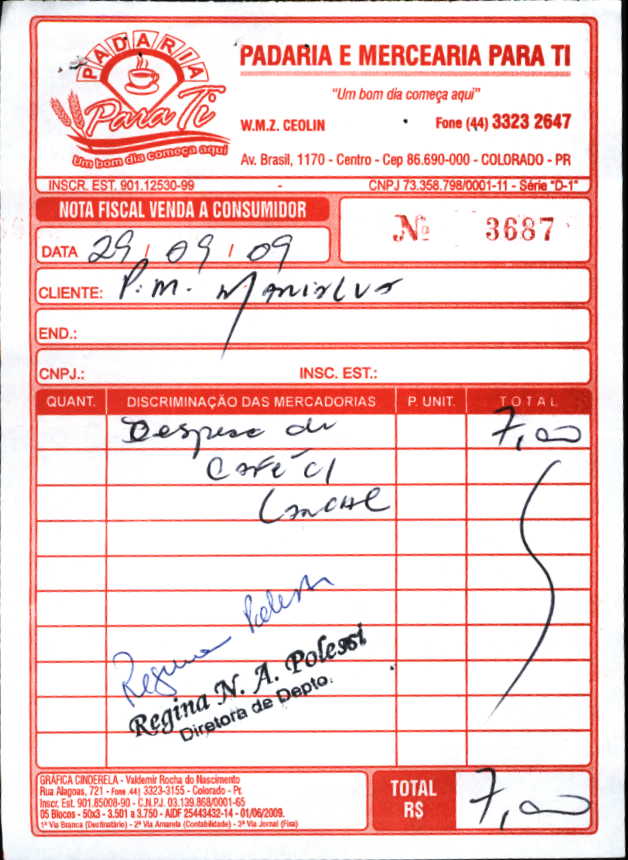 PADARIA
Para Ti
Um bom dia começa aqui
PADARIA E MERCEARIA PARA TI
"Um bom dia começa aqui"
W.M.Z. CEOLIN Fone (44) 3323 2647
Av. Brasil, 1170 - Centro - Cep 86.690-000 - COLORADO - PR
INSCR. EST. 901.12530-99 - CNPJ 73.358.798/0001-11 - Série "D-1"
NOTA FISCAL VENDA A CONSUMIDOR
Nº 3687
DATA 29 / 09 / 09
CLIENTE: P.M.
END.:
CNPJ.: INSC. EST.:
QUANT. DISCRIMINAÇÃO DAS MERCADORIAS P. UNIT. TOTAL
Despesa de 7,00
CAFÉ c/
Lanche
Regina Polessi
Regina N. A. Polessi
Diretora de Depto.
GRÁFICA CINDERELA - Valdemir Rocha do Nascimento
Rua Alagoas, 721 - Fone (44) 3323-3155 - Colorado - Pr.
Inscr. Est. 901.85008-90 - C.N.P.J. 03.139.868/0001-65
05 Blocos - 50x3 - 3.501 a 3.750 - AIDF 25443432-14 - 01/06/2009.
1ª Via Branca (Destinatário) - 2ª Via Amarela (Contabilidade) - 3ª Via Jornal (Fixa)
TOTAL
R$ 7,00